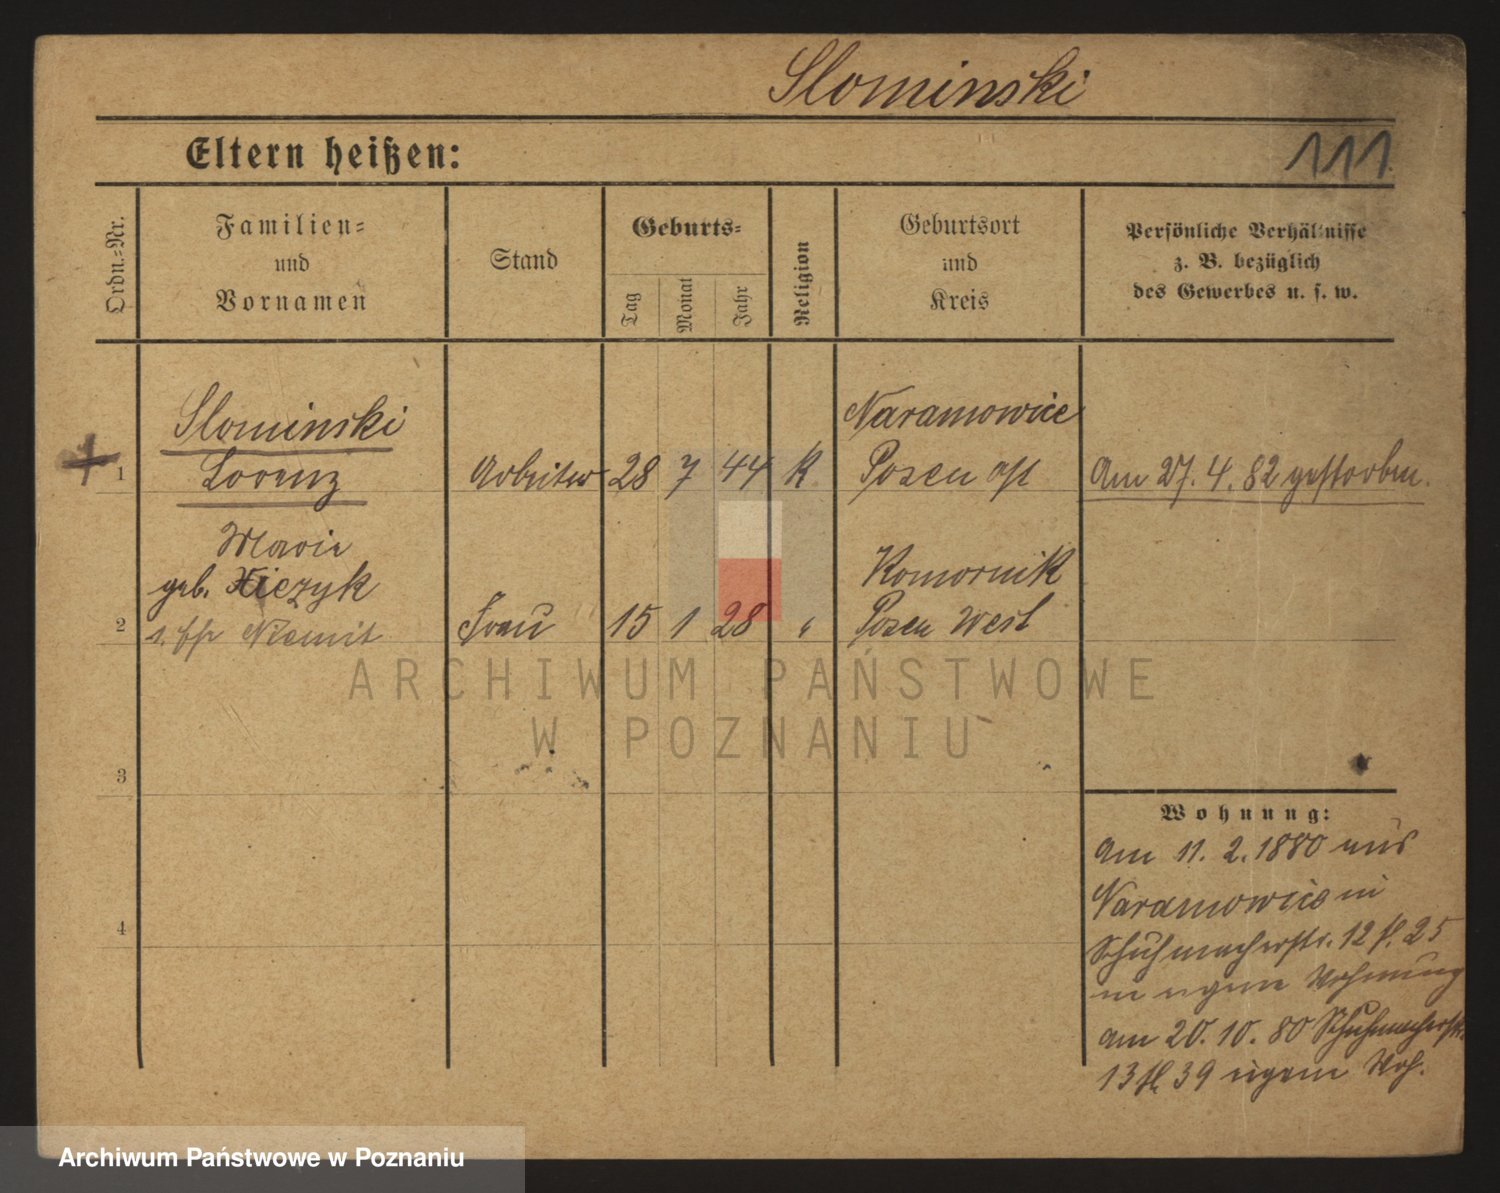 Slominski
Eltern heißen:
111.
Ordn.-Nr.
Familien-
und
Vornamen
Stand
Geburts-
Tag
Monat
Jahr
Religion
Geburtsort
und
Kreis
Persönliche Verhältnisse
z. B. bezüglich
des Gewerbes u. s. w.
Slominski
Naramowice
1 Lorenz Arbeiter 28 7 44 K Posen Ost Am 27. 4. 82 gestorben.
Marie
Komornik
geb.
2 Frau 15 1 28 " Posen West
ARCHIWUM PAŃSTWOWE
W POZNANIU
3
Wohnung:
Am 11. 2. 1880 aus
Naramowice in
4
Schuhmacherstr. 12 25
Wohnung
am 20. 10. 80 Schuhmacherstr.
13 39 eigene Woh.
Archiwum Państwowe w Poznaniu